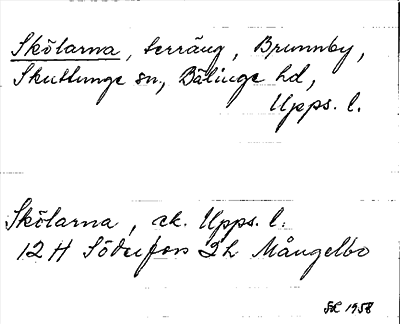 Skölarna, terräng, Brunnby,
Skuttunge sn, Bälinge hd,
Upps. l.
Skölarna, ek. Upps. l.
12 H Söderfors 2h Mångelbo
1958